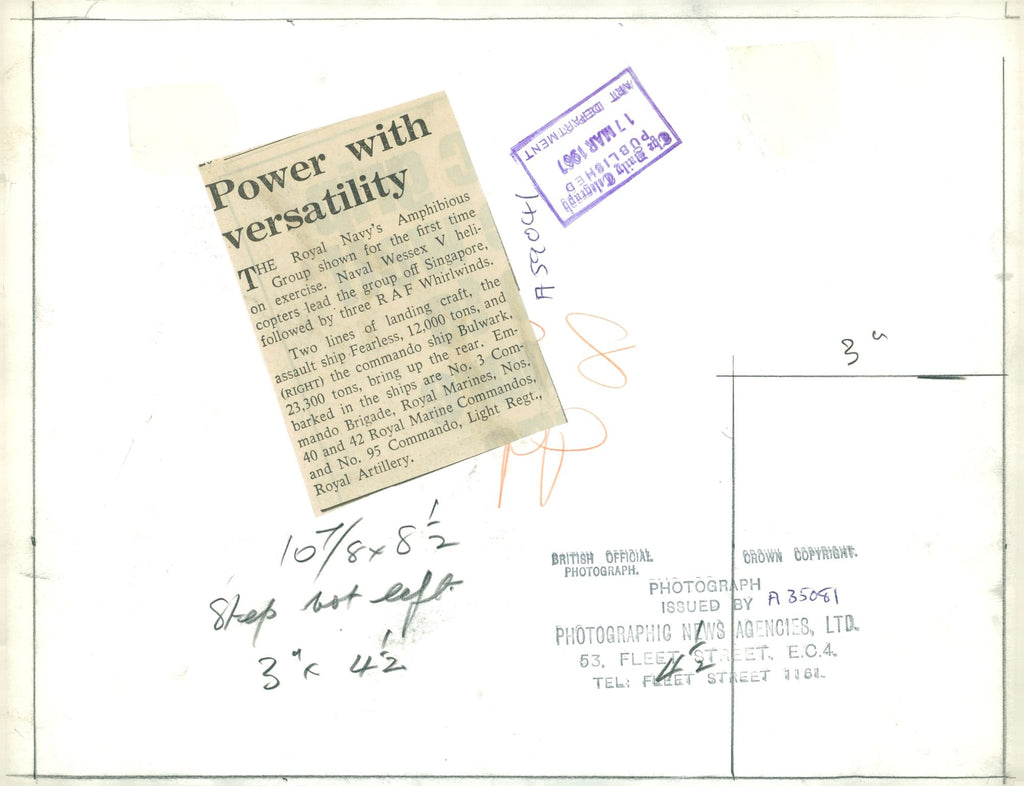 Power with
versatility
THE Royal Navy's Amphibious
Group shown for the first time
on exercise. Naval Wessex V heli-
copters lead the group off Singapore,
followed by three RAF Whirlwinds.
Two lines of landing craft, the
assault ship Fearless, 12,000 tons, and
(RIGHT) the commando ship Bulwark,
23,300 tons, bring up the rear. Em-
barked in the ships are No. 3 Com-
mando Brigade, Royal Marines, Nos.
40 and 42 Royal Marine Commandos,
and No. 95 Commando, Light Regt.,
Royal Artillery.
The Daily Telegraph
PUBLISHED
17 MAR 1967
ART DEPARTMENT
3"
10 7/8 x 8 1/2
3" x 4 1/2
BRITISH OFFICIAL
PHOTOGRAPH.
CROWN COPYRIGHT.
PHOTOGRAPH
ISSUED BY A 35081
PHOTOGRAPHIC NEWS AGENCIES, LTD.
53, FLEET STREET. E.C.4.
4 1/2
TEL: FLEET STREET 1161.